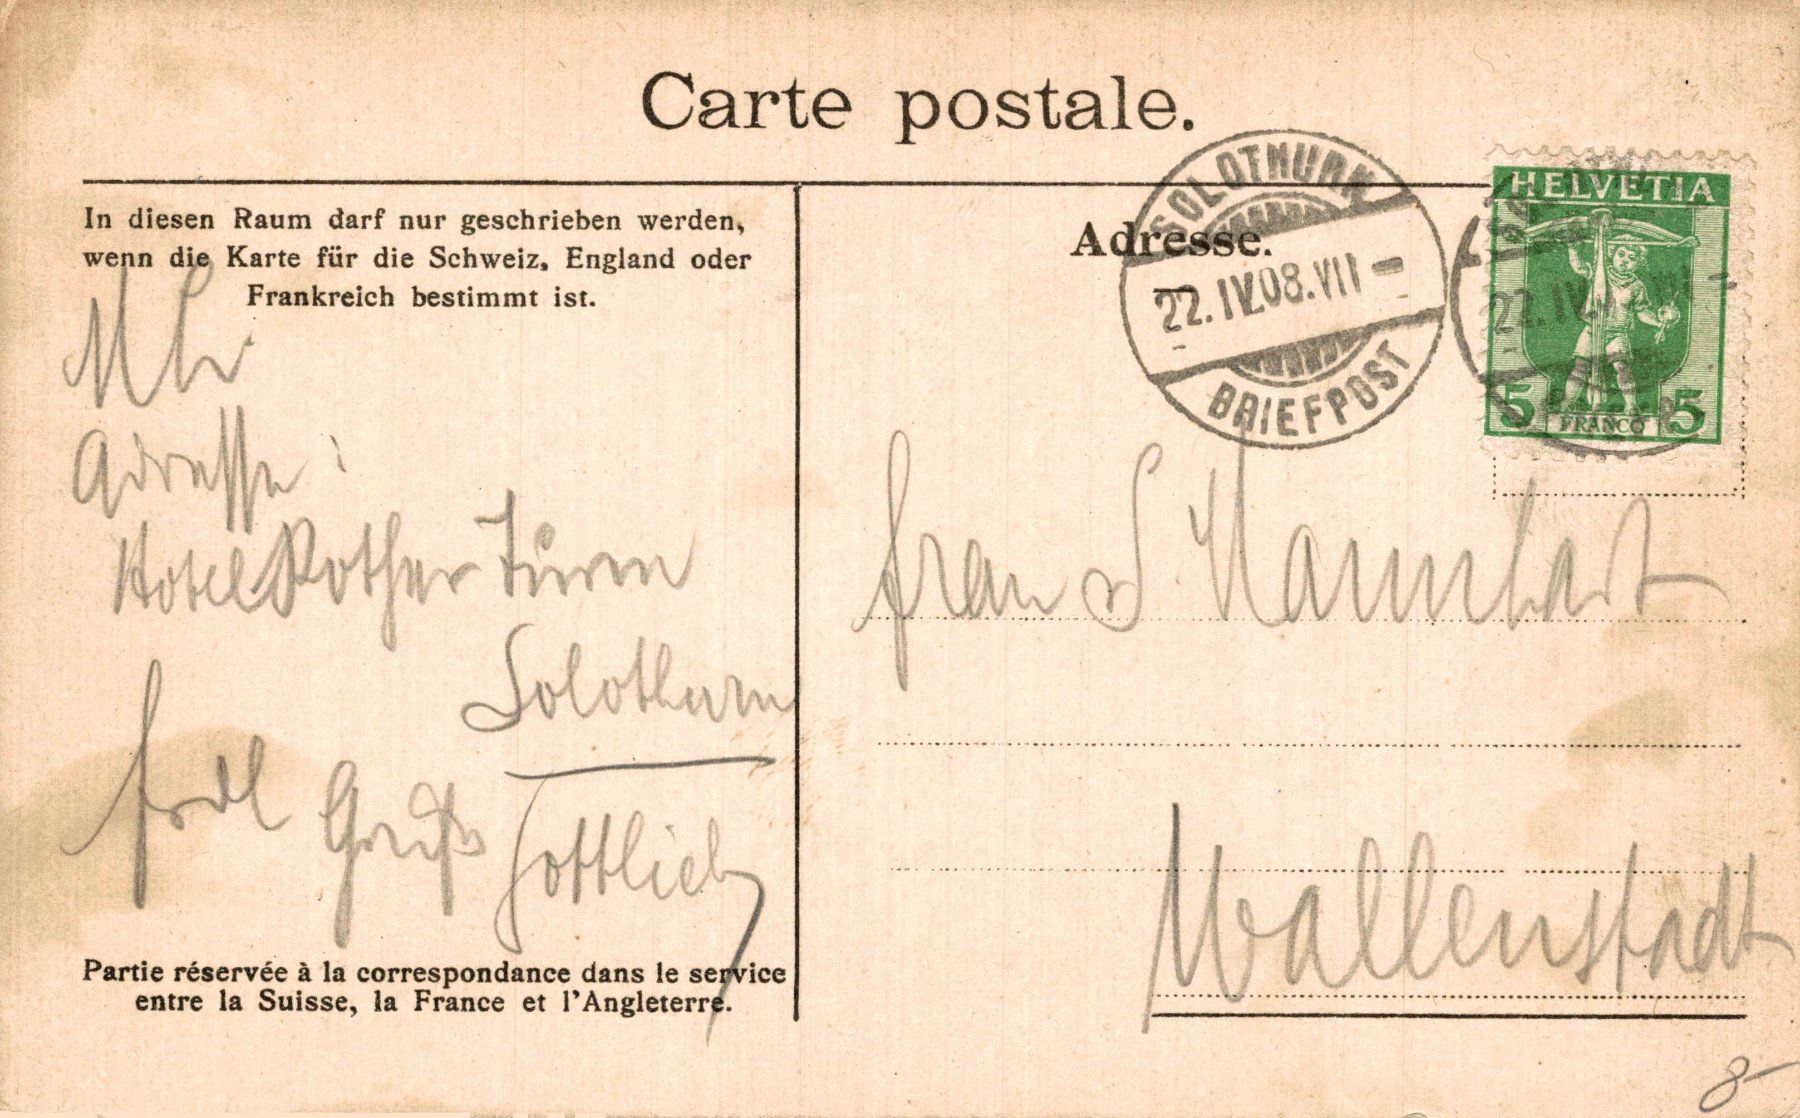 Carte postale.
In diesen Raum darf nur geschrieben werden,
wenn die Karte für die Schweiz, England oder
Frankreich bestimmt ist.
Adresse:
Hotel Rother Turm
Solothurn
frdl Gruß Gottlieb
Partie réservée à la correspondance dans le service
entre la Suisse, la France et l'Angleterre.
Adresse.
SOLOTHURN
22.IV.08.VII
BRIEFPOST
HELVETIA
5 FRANCO 5
22.IV
Frau S.
Wallenstadt
8-